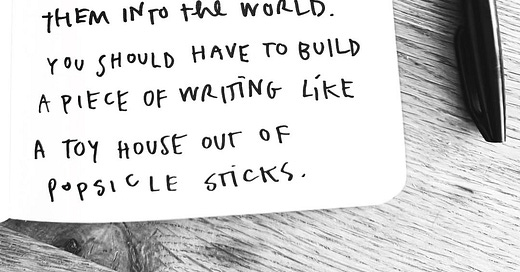 THEM INTO the WORLD.
YOU SHOULD HAVE TO BUILD
A PIECE OF WRITING LIKE
A TOY HOUSE OUT OF
POPSICLE STICKS.